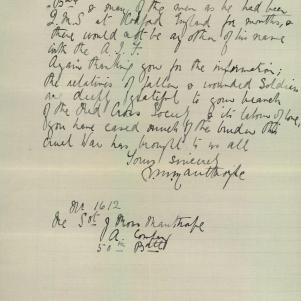 Batt. & many of the men as he had been
Q.M.S at Hosford England for months, &
there would not be any other of his name
with the A.I.F.
Again thanking you for the information;
the relatives of fallen & wounded Soldiers
are deeply grateful to your branch
of the Red Cross Society & its labour of love,
you have eased much of the burden this
cruel War has brought to us all
Yours sincerely
No 1612
Sgt J Ross Manthorpe
A. Company
50th Batt